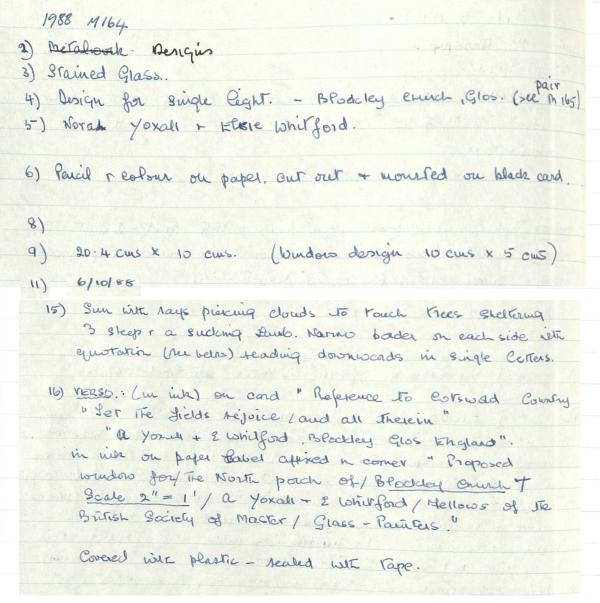 1988 M164
2) Metalwork. Designs
3) Stained Glass..
4) Design for single light. - Blockley Church, Glos. (see pair M165)
5) Nora Yoxall + Elsie Whitford.
6) Pencil + colour on paper. cut out + mounted on black card.
8)
9) 20.4 cms x 10 cms. (Window design 10 cms x 5 cms)
11) 6/10/88
15) Sun with rays piercing clouds to touch trees sheltering
3 sheep + a sucking lamb. Narrow border on each side with
quotation (see below) reading downwards in single letters.
16) VERSO.: (in ink) on card " Reference to Cotswold Country
" Let the fields rejoice / and all therein "
" A Yoxall + E Whitford, Blockley Glos England".
in ink on paper label affixed in corner " Proposed
window for / the North porch of / Blockley Church †
Scale 2" = 1' / A Yoxall + E Whitford / Fellows of the
British Society of Master / Glass-Painters."
Covered with plastic - sealed with tape.